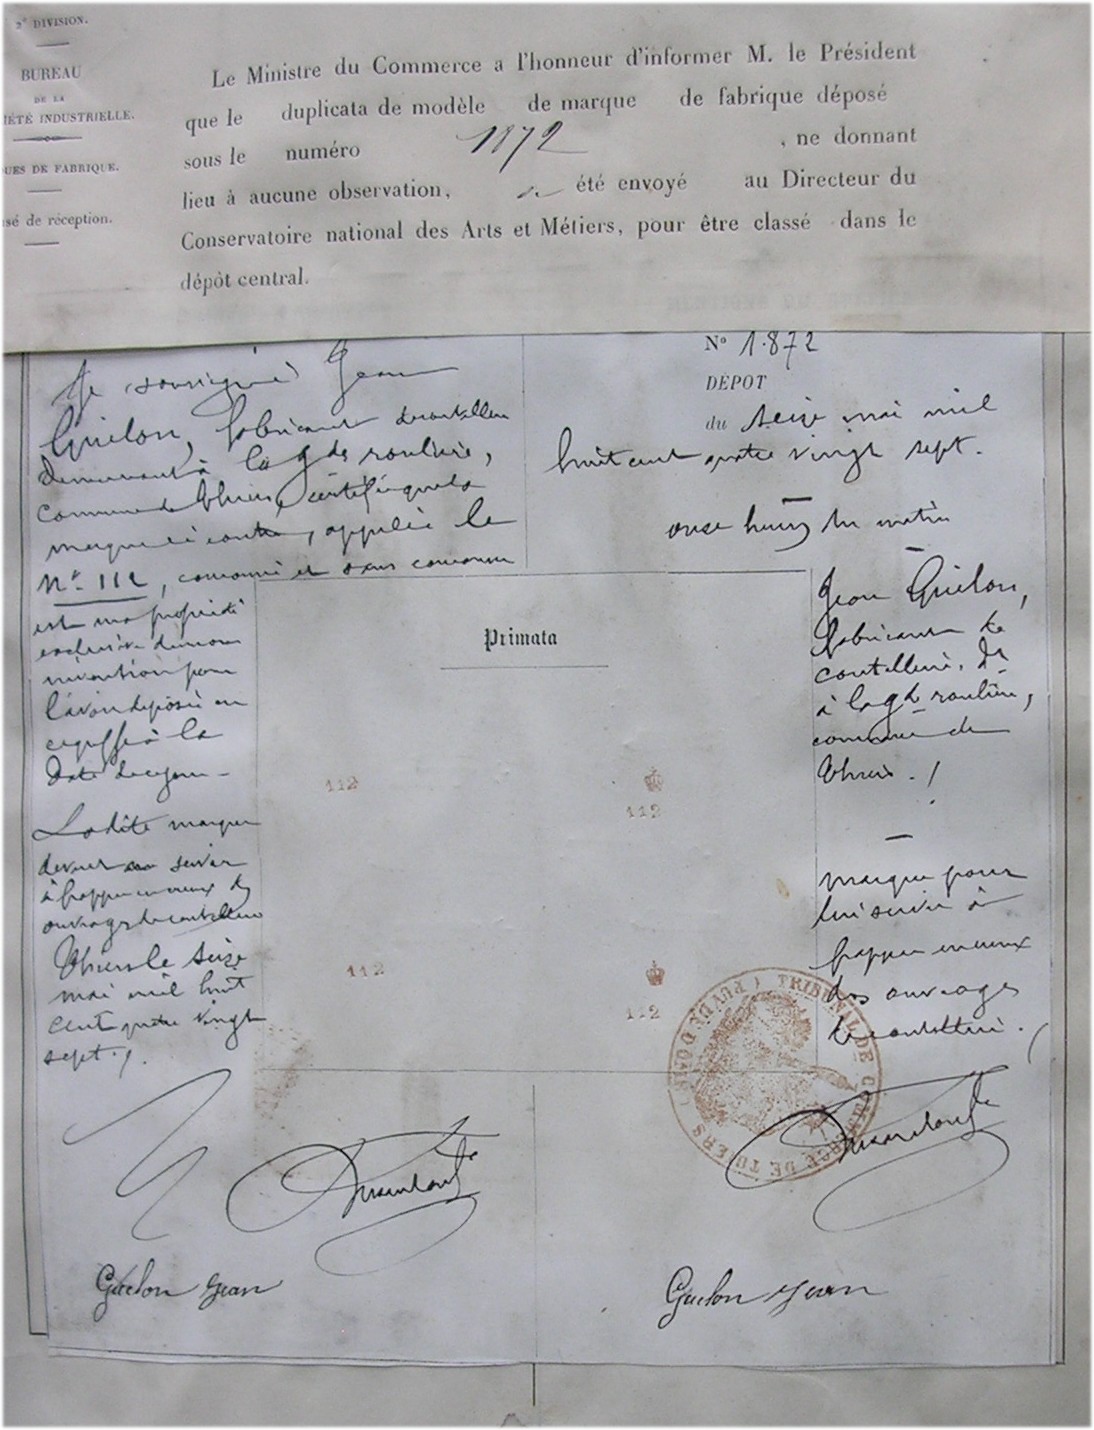 2e DIVISION.
BUREAU
DE LA
IÉTÉ INDUSTRIELLE.
UES DE FABRIQUE.
sé de réception.
Le Ministre du Commerce a l'honneur d'informer M. le Président
que le duplicata de modèle de marque de fabrique déposé
sous le numéro 1872 , ne donnant
lieu à aucune observation, a été envoyé au Directeur du
Conservatoire national des Arts et Métiers, pour être classé dans le
dépôt central.
Je soussigné Jean
Guelon, fabricant de coutellerie
demeurant à la gde roulière,
commune de Thiers, certifie que la
marque ci contre, appelée le
No 112, couronné et sans couronne
est ma propriété
exclusive de mon
invention pour
l'avoir déposée en
ce greffe à la
date de ce jour -
Ladite marque
devant servir
à frapper en creux des
ouvrages de coutellerie
Thiers le seize
mai mil huit
cent quatre vingt
sept./.
No 1.872
DÉPOT
du seize mai mil
huit cent quatre vingt sept.
onze heures du matin
Primata
112
112
112
112
Jean Guelon,
fabricant de
coutellerie, dt
à la gde roulière,
commune de
Thiers ./
marque pour
lui servir à
frapper en creux
des ouvrages
de coutellerie ./
TRIBUNAL DE COMMERCE DE THIERS (PUY DE DOME)
Guelon Jean
Guelon Jean